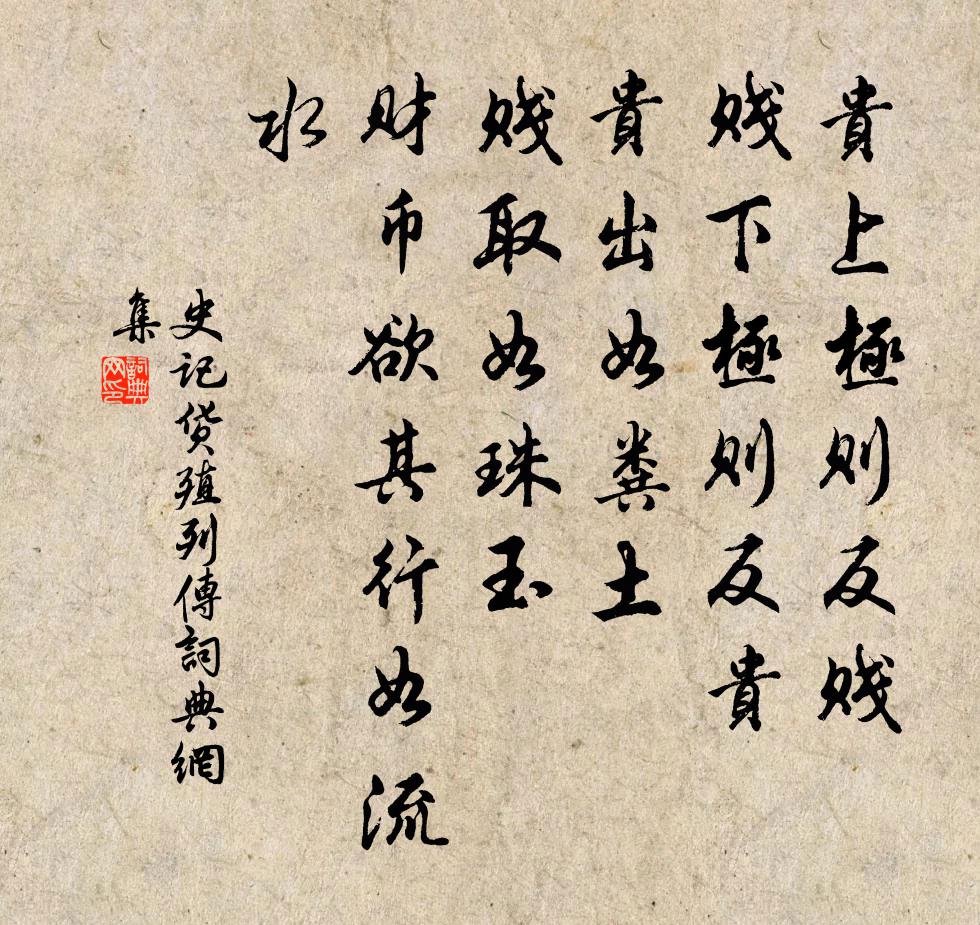 貴上極则反贱
贱下極则反貴
貴出如粪土
贱取如珠玉
财币欲其行如流
水
史记货殖列傳詞典網
集
詞典
网印